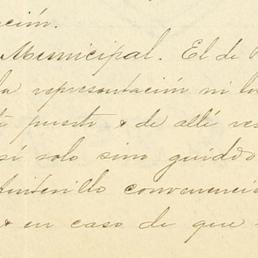 ción.
Municipal. El de
la representación ni la
puesto & de allí
sí solo sino guiado
tinterillo convenenci
& en caso de que